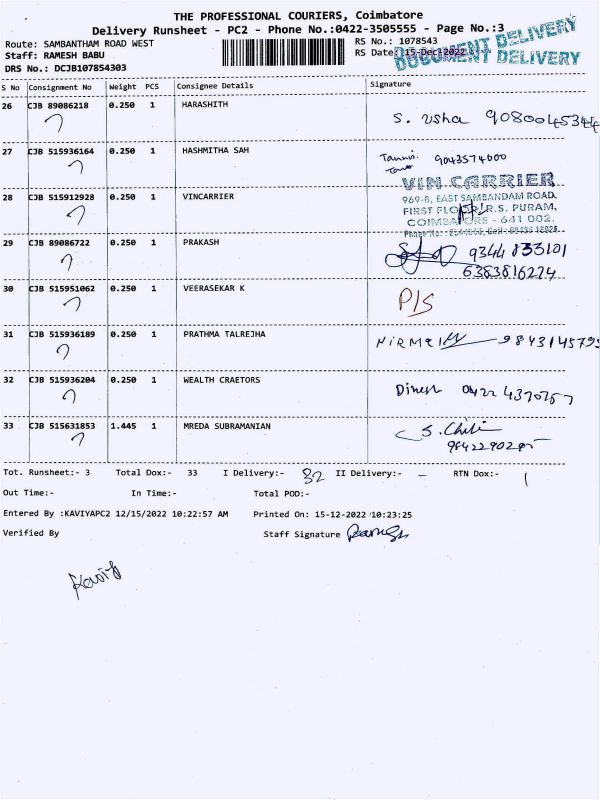 THE PROFESSIONAL COURIERS, Coimbatore
Delivery Runsheet - PC2 - Phone No.:0422-3505555 - Page No.:3
Route: SAMBANTHAM ROAD WEST RS No.: 1078543
Staff: RAMESH BABU RS Date: 15-Dec-2022
DRS No.: DCJB107854303
DOCUMENT DELIVERY
DOCUMENT DELIVERY
S No Consignment No Weight PCS Consignee Details Signature
26 CJB 89086218 0.250 1 HARASHITH S. Usha 9080045344
27 CJB 515936164 0.250 1 HASHMITHA SAH 9043574000
28 CJB 515912928 0.250 1 VINCARRIER
VIN CARRIER
969-B, EAST SAMBANDAM ROAD,
FIRST FLOOR, R.S. PURAM,
COIMBATORE - 641 002.
29 CJB 89086722 0.250 1 PRAKASH 9344833101
6383816274
30 CJB 515951062 0.250 1 VEERASEKAR K P/S
31 CJB 515936189 0.250 1 PRATHMA TALREJHA NIRMAL 9843145795
32 CJB 515936204 0.250 1 WEALTH CRAETORS Dinesh 0422 4370757
33 CJB 515631853 1.445 1 MREDA SUBRAMANIAN S. Chili
9842290295
Tot. Runsheet:- 3 Total Dox:- 33 I Delivery:- 32 II Delivery:- - RTN Dox:- 1
Out Time:- In Time:- Total POD:-
Entered By :KAVIYAPC2 12/15/2022 10:22:57 AM Printed On: 15-12-2022 10:23:25
Verified By Staff Signature